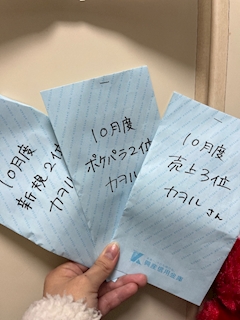 10月度
新規2位
カヲル
10月度
ポケパラ2位
カヲル
10月度
売上3位
カヲルさん